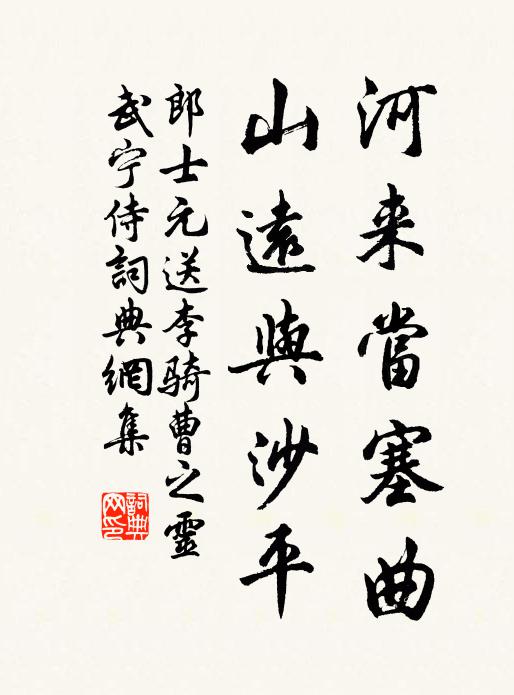 河来當塞曲
山遠與沙平
郎士元送李骑曹之靈
武宁侍詞典網集
詞典网印